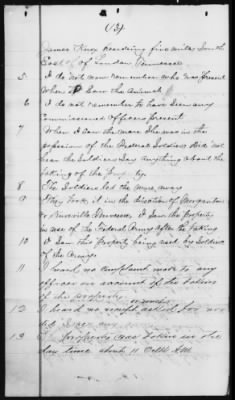 (3)
James King residing five miles South
East of Loudon Tennessee
5 I do not now remember who was present
When I Saw the Animal
6 I do not remember to have seen any
Commissioned officers present
7 When I saw the mare She was in the
possession of the Federal Soldiers Did not
hear the Soldiers Say anything about the
taking of the property
8 The Soldiers led the mare away
9 They took it in the direction of Morganton
or Knoxville Tennessee, I Saw the property
in use of the Federal Army after the taking
10 I Saw this property being used by Soldiers
of the Army
11 I heard no complaint made to any
officer on account of the taking
of this property
12 I heard no receipt asked for nor
did I see any
13 The property was taken in the
day time about 11 O'clk A.M.